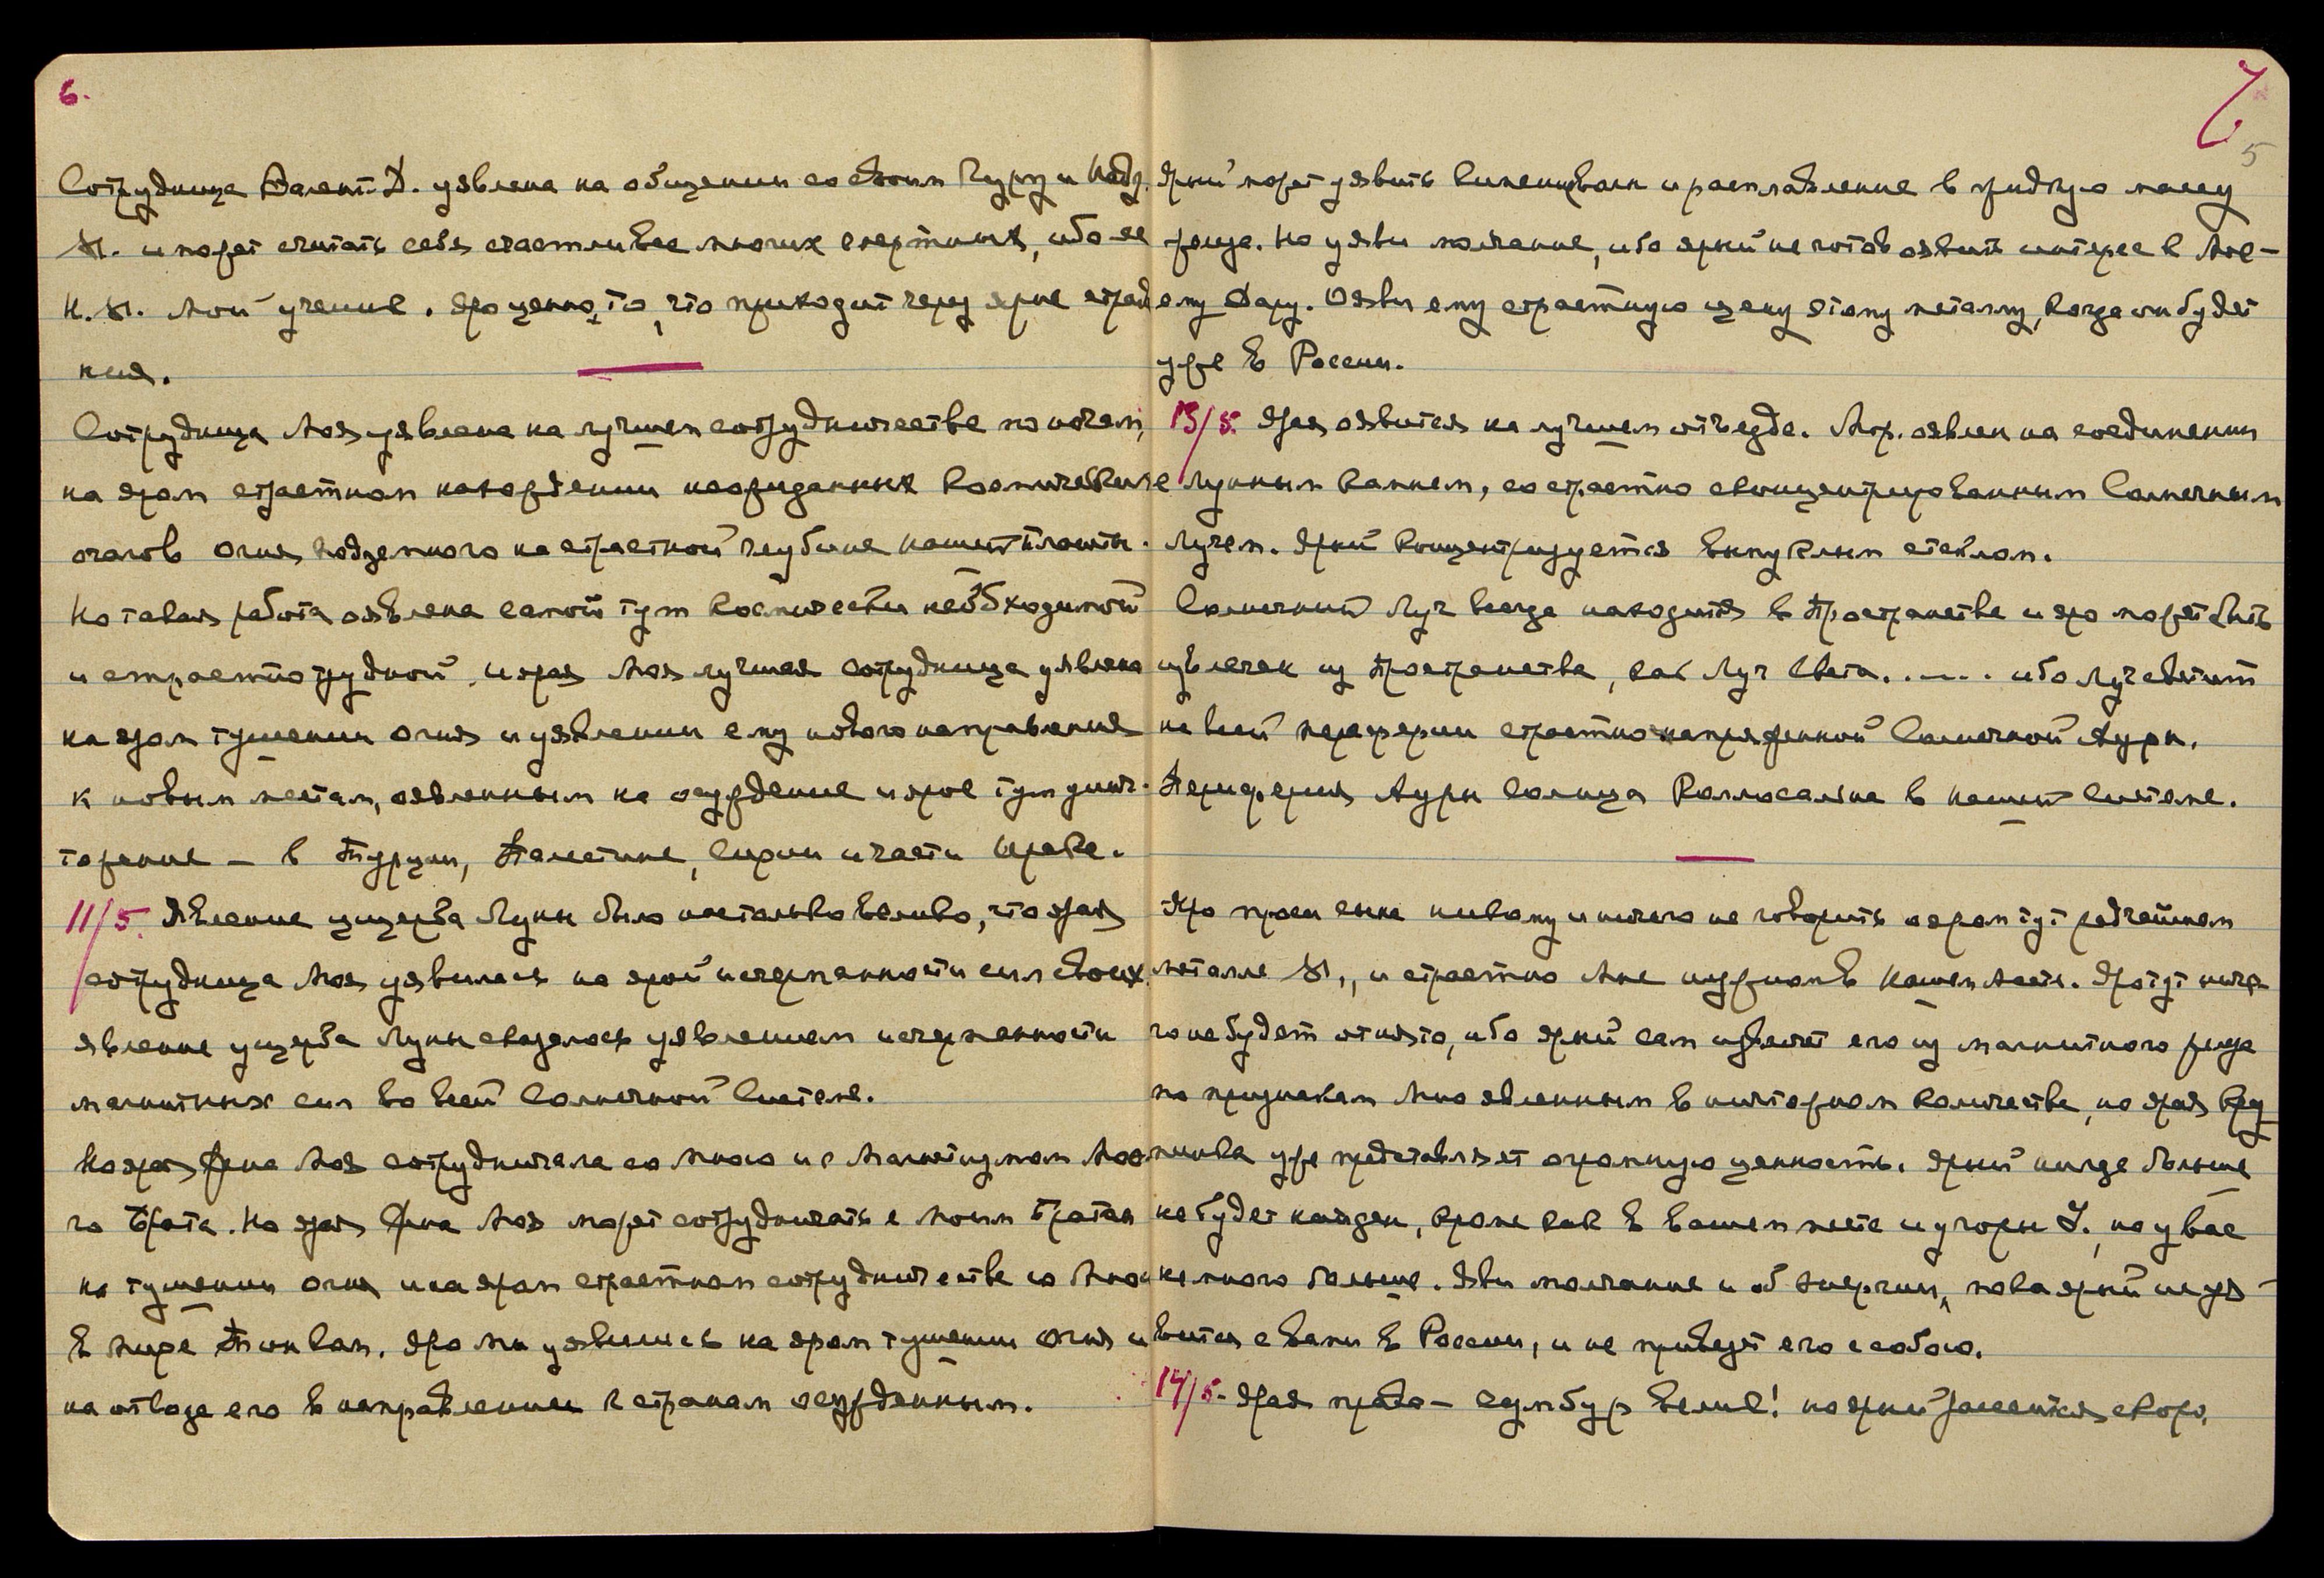 6.
Сотрудница Валент. Д. уявлена на общении со своим Гуру и Кадз.
Ы. и может считать себя счастливее многих смертных, ибо ее
К. Ы. Мой ученик. Яро ценно то, что приходит через ярые страд
ния.
Сотрудница Моя уявлена на лучшем сотрудничестве по ночам,
на яром страстном нахождении неожиданных Космических
очагов Огня подземного на страстной глубине нашей Планеты.
Но такая работа оявлена самой тут космически необходимой
и страстно трудной, и ярая Моя лучшая сотрудница уявлена
на яром тушении огня и уявлении ему нового направления
к новым местам, оявленным на осуждение и ярое тут унич-
тожение — в Турции, Палестине, Сирии и части Ирака.
11/5. Явление ущерба Луны было настолько велико, что ярая
сотрудница Моя уявилась на ярой исчерпанности сил своих.
явление ущерба Луны сказалось уявлением исчерпанности
магнитных сил во всей Солнечной Системе.
Но ярая Жена Моя сотрудничала со Мною и с Магнетизмом Мое
го Брата. Но ярая Жена Моя может сотрудничать с Моим Братом
на тушении огня и на яром страстном сотрудничестве со Мною
в Мире Тонком. Яро мы уявились на яром тушении Огня и
на отводе его в направлении к странам осужденным.
7
5
Ярый может уявить и расплавление в жидкую массу
Но уяви молчание, ибо ярый не готов оявить интерес к Мое-
ему Дару. Ояви ему страстную цену этому металлу, когда он будет
уже в России.
13/5. Ярая оявится на лучшем отъезде. Мор. оявлен на соединении
с Лунным Камнем, со страстно сконцентрированным Солнечным
Лучем. Ярый концентрируется выпуклым стеклом.
Солнечный Луч всегда находится в Пространстве и яро может быть
извлечен из Пространства, как Луч Света..... ибо Луч светит
на всей периферии страстно напряженной Солнечной Ауры.
Периферия Ауры Солнца Коллосальна в нашей Системе.
Яро проси сына никому и ничего не говорить о яром тут редчайшем
металле Ы., и страстно Мне нужном в Нашем Месте. Яро тут ниче-
го не будет отнято, ибо ярый сам извлечет его из магнитного
по признакам Мною явленным в ничтожном количестве, но ярая кру
пинка уже представляет огромную ценность. Ярый нигде больше
не будет найден, кроме как в вашем месте и у горы У., но у вас
немного больше. Яви молчание и об Энергии, пока ярый не уя-
вится с вами в России, и не привезет его с собою.
14/5. Ярая права — сумбур велик! но ярый скоро,